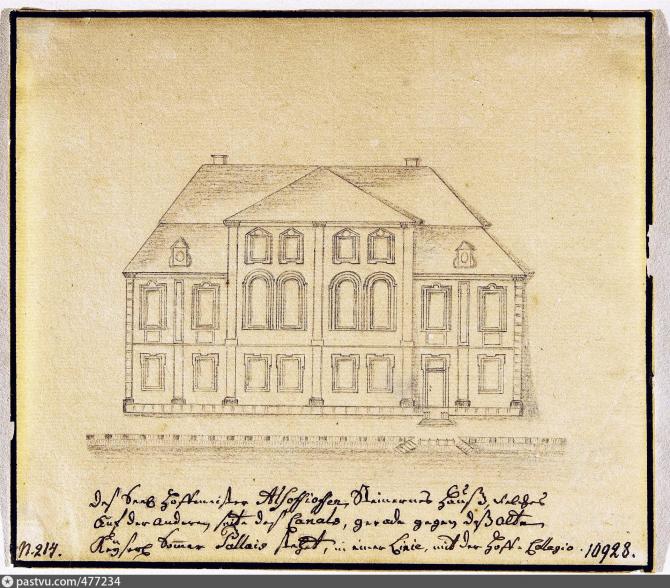 Des Herrn Hoffmeister Alsoffioffen, Steinernes Hauß, welches
Auf der anderen seite des Canals, gerade gegen daß alte
Käyserl. Somer Pallais stehet, in einer Linie, mit der Hoff-Collegio.
N. 214.
10928.
pastvu.com/477234